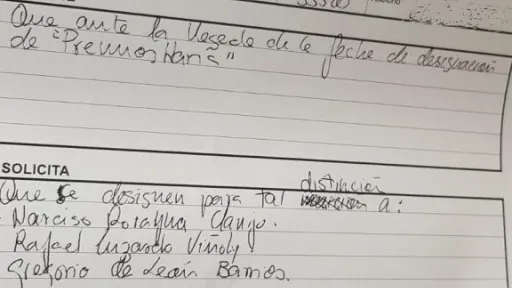 Que ante la llegada de la fecha de designación
de "Premios
SOLICITA
distinción
Que se designen para tal a:
Narciso
Rafael Luzardo Viñoly
Gregorio de León Barrios.